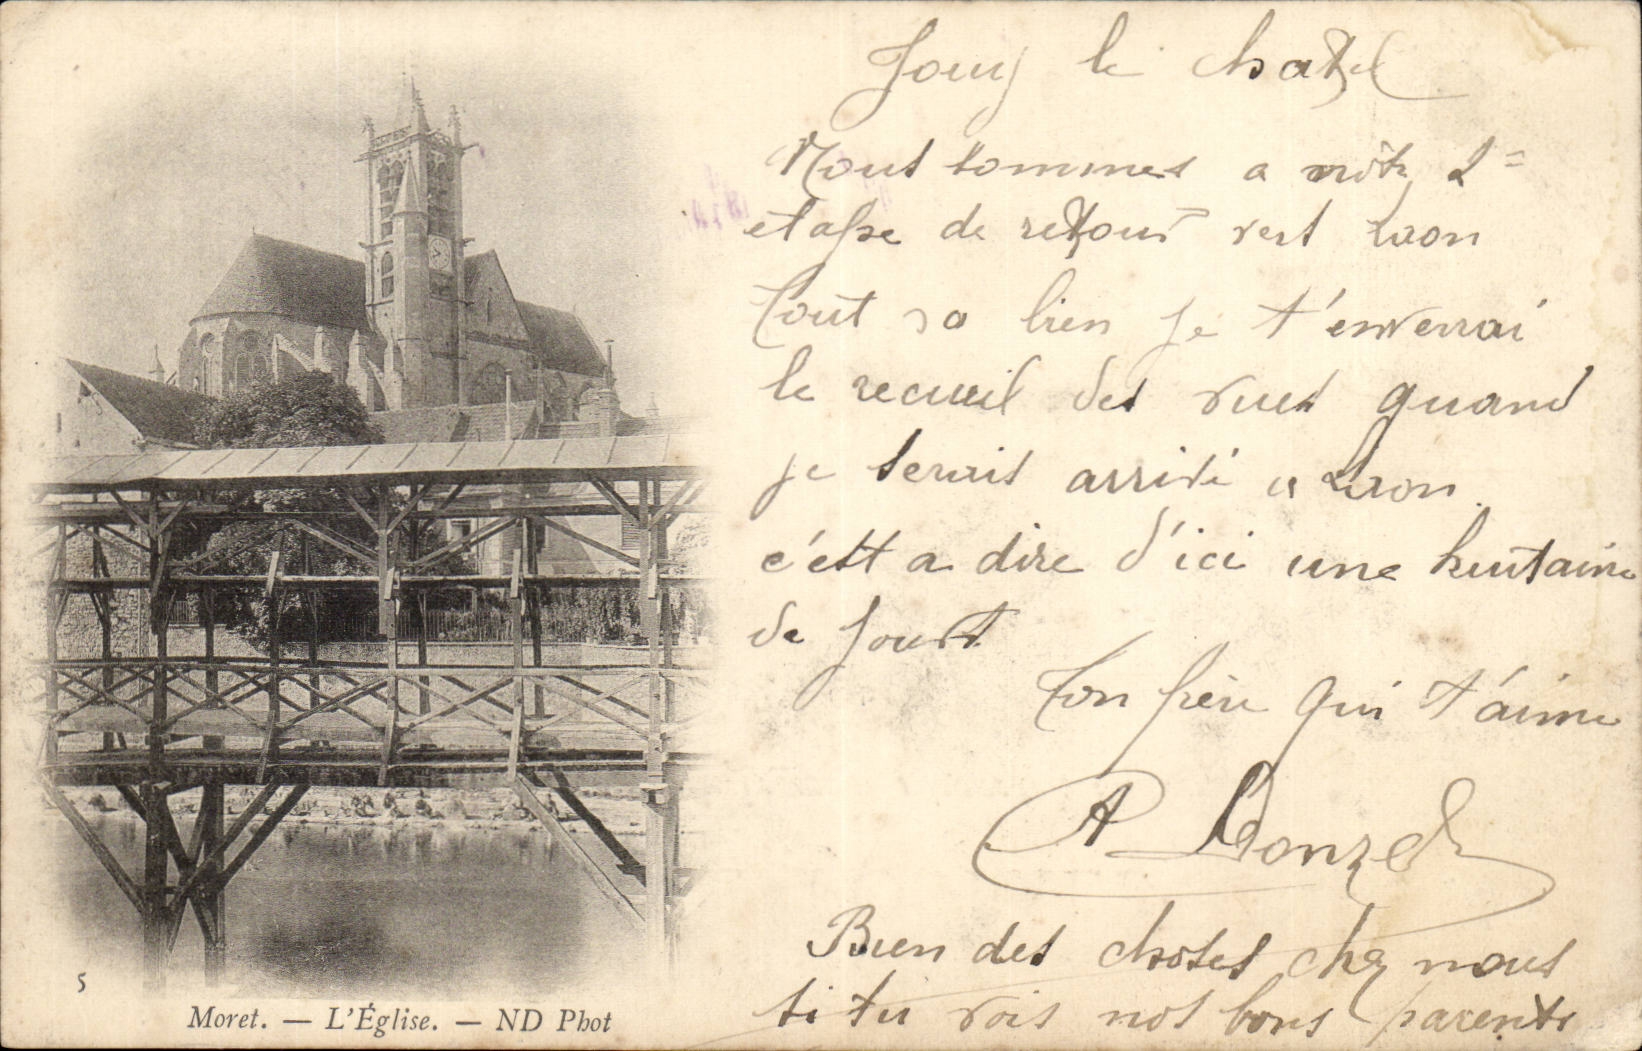 Jouy le chatel
Nous sommes a nôtre 2=
etape de retour vers Laon
Tout va bien je t'enverrai
le recueil des vues quand
je serais arrivé a Laon.
c'est a dire d'ici une huitaine
de jours
Ton frère qui t'aime
A Donzel
Bien des choses chez nous
si tu vois nos bons parents
5
Moret. — L'Église. — ND Phot